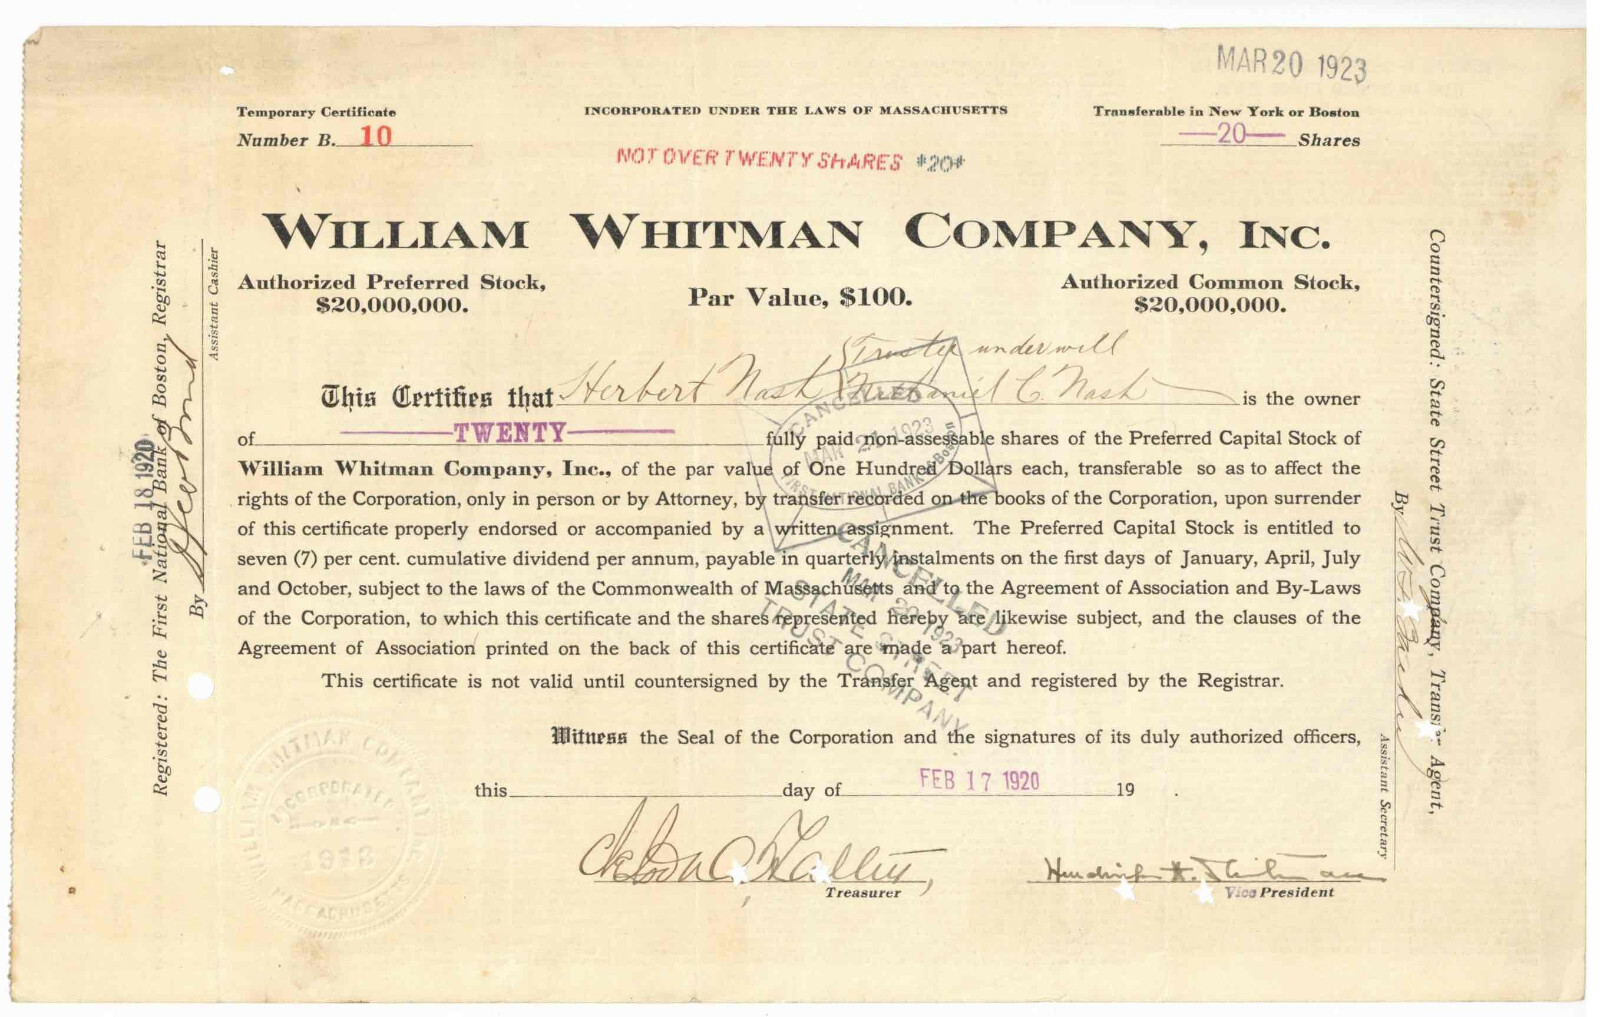 MAR 20 1923
Temporary Certificate
Number B. 10
INCORPORATED UNDER THE LAWS OF MASSACHUSETTS
Transferable in New York or Boston
—20— Shares
NOT OVER TWENTY SHARES *20*
WILLIAM WHITMAN COMPANY, INC.
Authorized Preferred Stock,
$20,000,000.
Par Value, $100.
Authorized Common Stock,
$20,000,000.
Trustee under will
This Certifies that Herbert Nash Nathaniel C. Nash is the owner
of TWENTY fully paid non-assessable shares of the Preferred Capital Stock of
William Whitman Company, Inc., of the par value of One Hundred Dollars each, transferable so as to affect the
rights of the Corporation, only in person or by Attorney, by transfer recorded on the books of the Corporation, upon surrender
of this certificate properly endorsed or accompanied by a written assignment. The Preferred Capital Stock is entitled to
seven (7) per cent. cumulative dividend per annum, payable in quarterly instalments on the first days of January, April, July
and October, subject to the laws of the Commonwealth of Massachusetts and to the Agreement of Association and By-Laws
of the Corporation, to which this certificate and the shares represented hereby are likewise subject, and the clauses of the
Agreement of Association printed on the back of this certificate are made a part hereof.
This certificate is not valid until countersigned by the Transfer Agent and registered by the Registrar.
Witness the Seal of the Corporation and the signatures of its duly authorized officers,
this day of FEB 17 1920 19 .
Treasurer
Hendricks H. Whitman
Vice President
CANCELLED
MAR 21 1923
FIRST NATIONAL BANK of Boston
CANCELLED
MAR 20 1923
STATE STREET
TRUST COMPANY
FEB 18 1920
Registered: The First National Bank of Boston, Registrar
By
Assistant Cashier
Countersigned: State Street Trust Company, Transfer Agent,
By
Assistant Secretary
WILLIAM WHITMAN COMPANY INC.
INCORPORATED
1913
MASSACHUSETTS